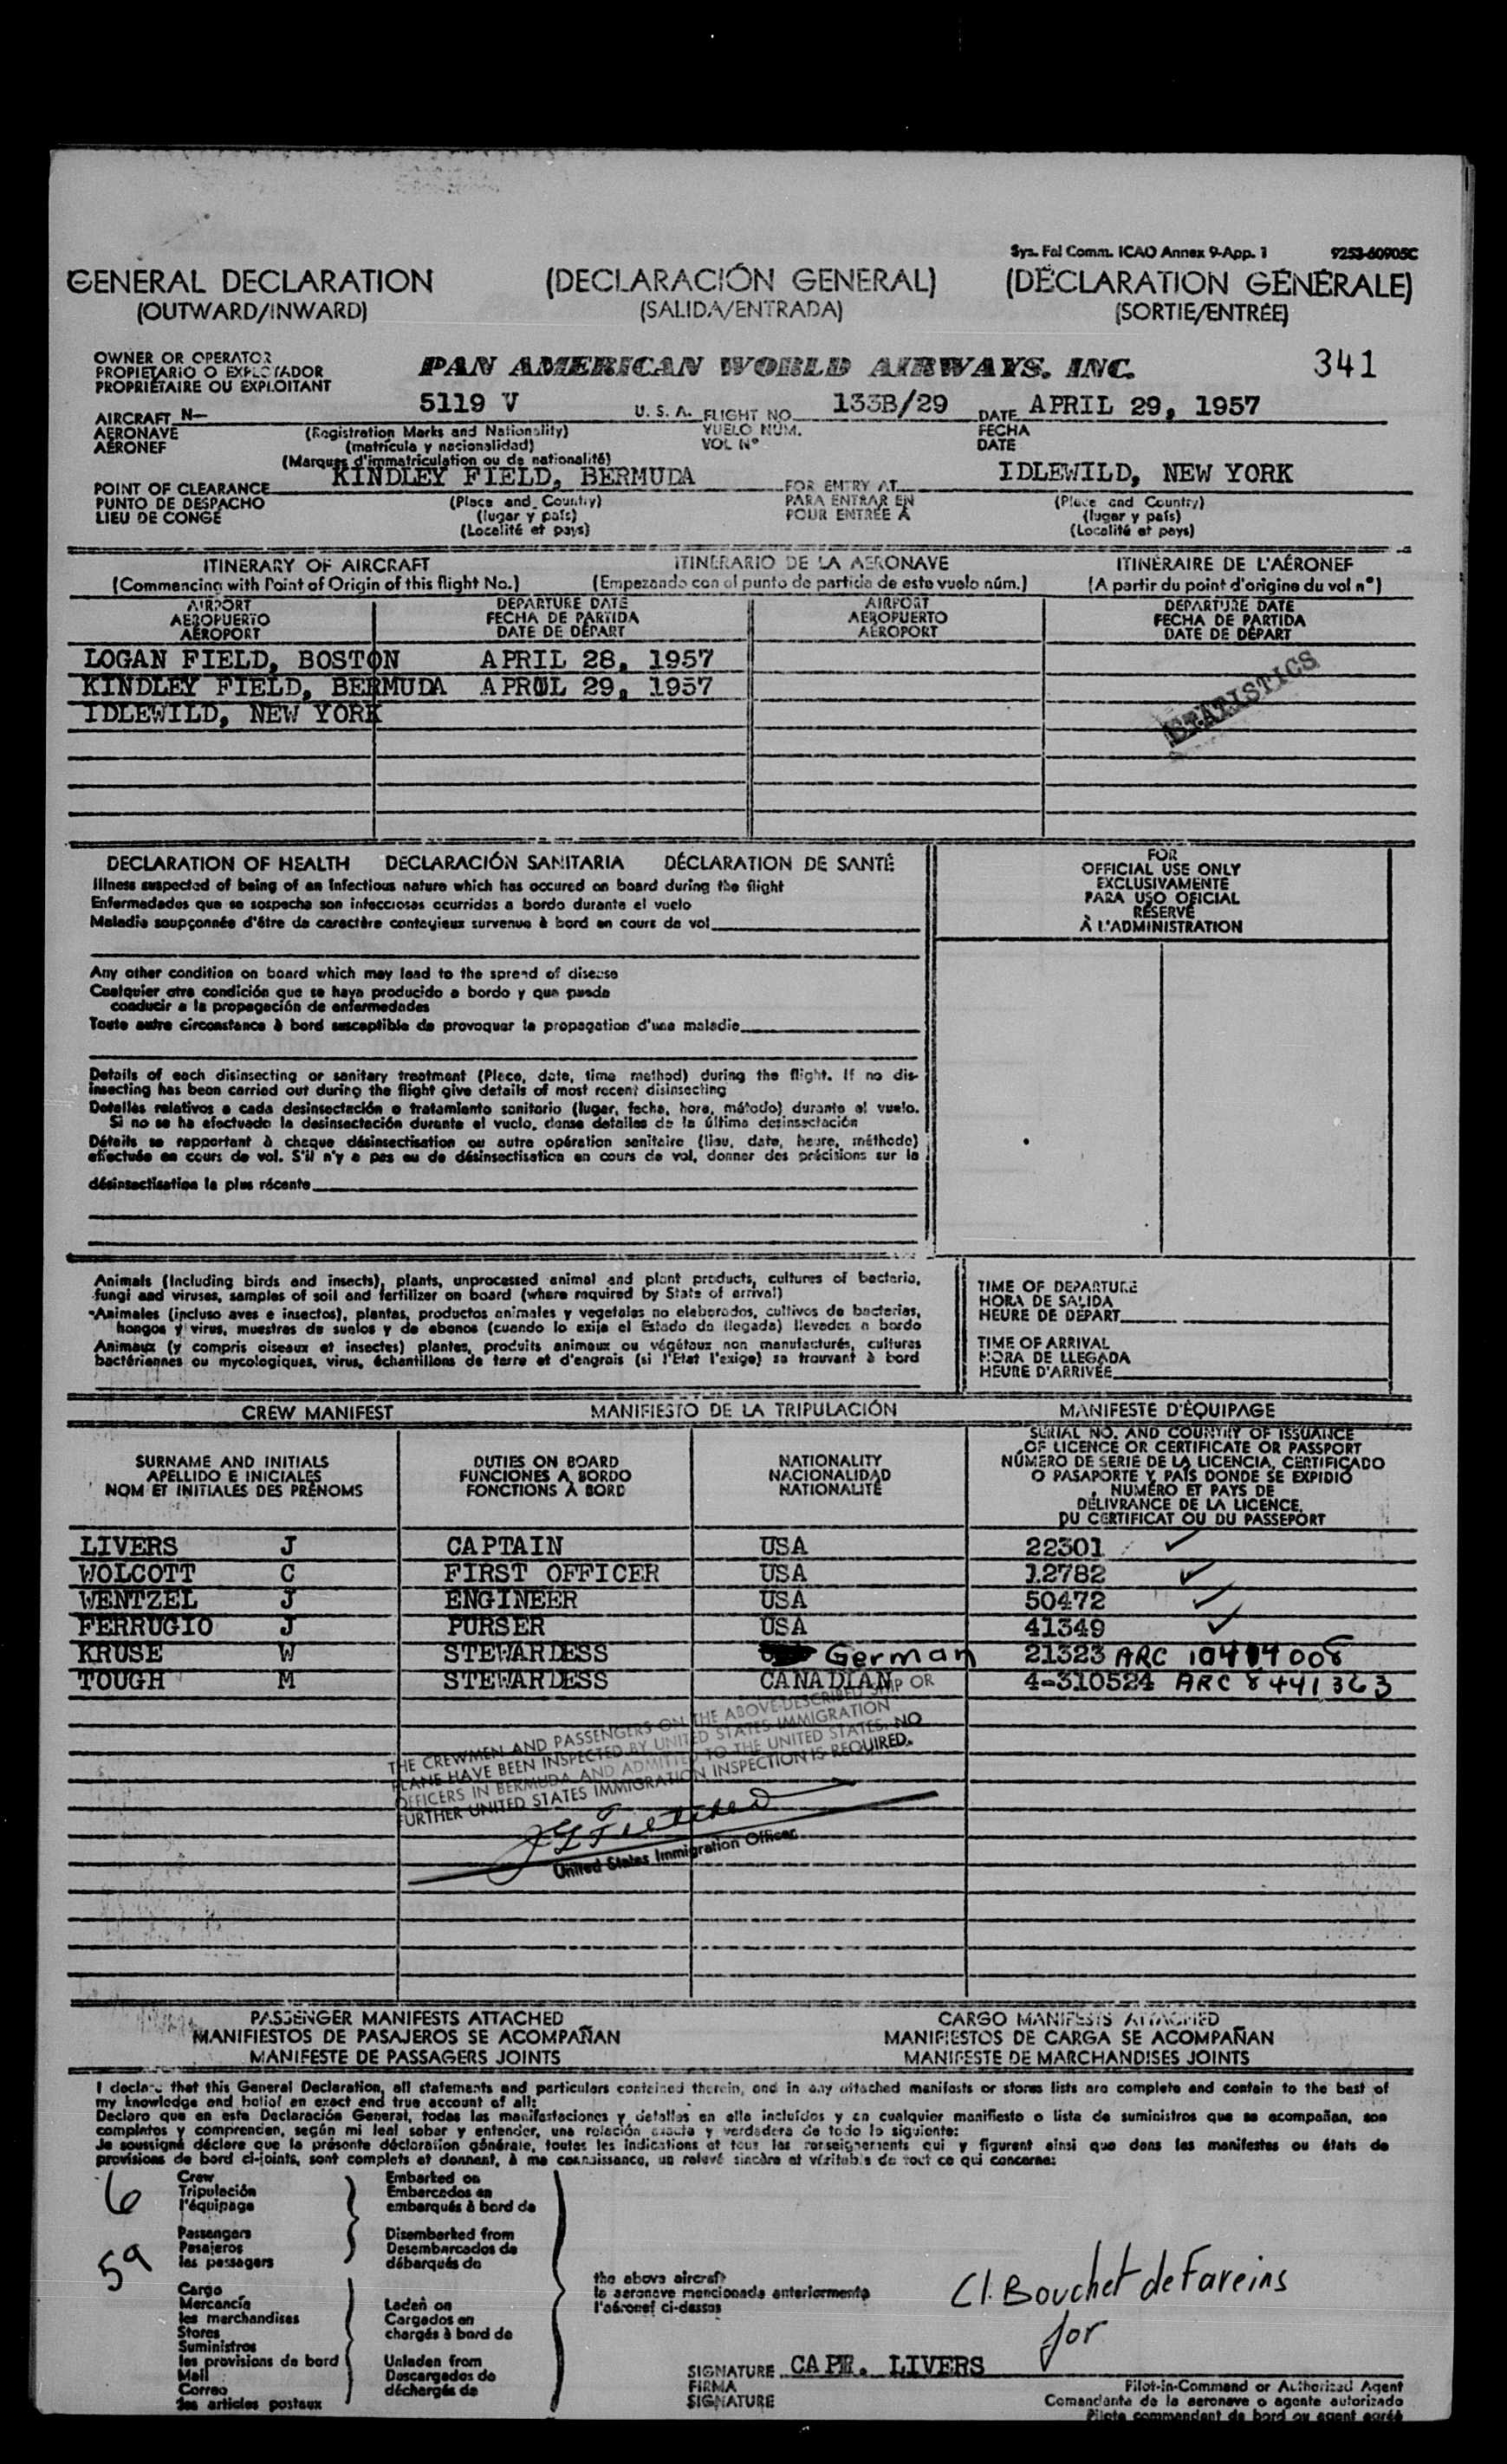 Sys. Fal Comm. ICAO Annex 9-App. 1 9253-60905C
GENERAL DECLARATION (DECLARACIÓN GENERAL) (DÉCLARATION GÉNÉRALE)
(OUTWARD/INWARD) (SALIDA/ENTRADA) (SORTIE/ENTRÉE)
OWNER OR OPERATOR
PROPIETARIO O EXPLOTADOR PAN AMERICAN WORLD AIRWAYS, INC. 341
PROPRIÉTAIRE OU EXPLOITANT
AIRCRAFT N— 5119 V U. S. A. FLIGHT NO. 133B/29 DATE APRIL 29, 1957
AERONAVE (Registration Marks and Nationality) VUELO NÚM. FECHA
AÉRONEF (matrícula y nacionalidad) VOL Nº DATE
(Marques d'immatriculation ou de nationalité)
POINT OF CLEARANCE KINDLEY FIELD, BERMUDA FOR ENTRY AT IDLEWILD, NEW YORK
PUNTO DE DESPACHO (Place and Country) PARA ENTRAR EN (Place and Country)
LIEU DE CONGÉ (lugar y país) POUR ENTRÉE À (lugar y país)
(Localité et pays) (Localité et pays)
ITINERARY OF AIRCRAFT ITINERARIO DE LA AERONAVE ITINÉRAIRE DE L'AÉRONEF
(Commencing with Point of Origin of this flight No.) (Empezando con el punto de partida de este vuelo núm.) (A partir du point d'origine du vol nº)
AIRPORT DEPARTURE DATE AIRPORT DEPARTURE DATE
AEROPUERTO FECHA DE PARTIDA AEROPUERTO FECHA DE PARTIDA
AÉROPORT DATE DE DÉPART AÉROPORT DATE DE DÉPART
LOGAN FIELD, BOSTON APRIL 28, 1957
KINDLEY FIELD, BERMUDA APRUL 29, 1957
IDLEWILD, NEW YORK
STATISTICS
DECLARATION OF HEALTH DECLARACIÓN SANITARIA DÉCLARATION DE SANTÉ
Illness suspected of being of an Infectious nature which has occured on board during the flight
Enfermedades que se sospecha son infecciosas ocurridas a bordo durante el vuelo
Maladie soupçonnée d'être de caractère contagieux survenue à bord en cours de vol
FOR
OFFICIAL USE ONLY
EXCLUSIVAMENTE
PARA USO OFICIAL
RÉSERVÉ
À L'ADMINISTRATION
Any other condition on board which may lead to the spread of disease
Cualquier otra condición que se haya producido a bordo y que pueda
conducir a la propagación de enfermedades
Toute autre circonstance à bord susceptible de provoquer la propagation d'une maladie
Details of each disinsecting or sanitary treatment (Place, date, time method) during the flight. If no dis-
insecting has been carried out during the flight give details of most recent disinsecting
Detalles relativos a cada desinsectación o tratamiento sanitario (lugar, fecha, hora, método) durante el vuelo.
Si no se ha efectuado la desinsectación durante el vuelo, dense detalles de la última desinsectación
Détails se rapportant à chaque désinsectisation ou autre opération sanitaire (lieu, date, heure, méthode)
effectuée en cours de vol. S'il n'y a pas eu de désinsectisation en cours de vol, donner des précisions sur la
désinsectisation la plus récente
Animals (Including birds and insects), plants, unprocessed animal and plant products, cultures of bacteria,
fungi and viruses, samples of soil and fertilizer on board (where required by State of arrival)
Animales (incluso aves e insectos), plantas, productos animales y vegetales no elaborados, cultivos de bacterias,
hongos y virus, muestras de suelos y de abonos (cuando lo exija el Estado de llegada) llevados a bordo
Animaux (y compris oiseaux et insectes) plantes, produits animaux ou végétaux non manufacturés, cultures
bactériennes ou mycologiques, virus, échantillons de terre et d'engrais (si l'Etat l'exige) se trouvant à bord
TIME OF DEPARTURE
HORA DE SALIDA
HEURE DE DÉPART
TIME OF ARRIVAL
HORA DE LLEGADA
HEURE D'ARRIVÉE
CREW MANIFEST MANIFIESTO DE LA TRIPULACIÓN MANIFESTE D'ÉQUIPAGE
SURNAME AND INITIALS
APELLIDO E INICIALES
NOM ET INITIALES DES PRÉNOMS
DUTIES ON BOARD
FUNCIONES A BORDO
FONCTIONS À BORD
NATIONALITY
NACIONALIDAD
NATIONALITÉ
SERIAL NO. AND COUNTRY OF ISSUANCE
OF LICENCE OR CERTIFICATE OR PASSPORT
NÚMERO DE SERIE DE LA LICENCIA, CERTIFICADO
O PASAPORTE Y PAÍS DONDE SE EXPIDIÓ
NUMÉRO ET PAYS DE
DÉLIVRANCE DE LA LICENCE,
DU CERTIFICAT OU DU PASSEPORT
LIVERS J CAPTAIN USA 22301 ✓
WOLCOTT C FIRST OFFICER USA 12782 ✓
WENTZEL J ENGINEER USA 50472 ✓
FERRUGIO J PURSER USA 41349 ✓
KRUSE W STEWARDESS German 21323 ARC
TOUGH M STEWARDESS CANADIAN 4-310524 ARC 8441363
THE CREWMEN AND PASSENGERS ON THE ABOVE-DESCRIBED SHIP OR
PLANE HAVE BEEN INSPECTED BY UNITED STATES IMMIGRATION
OFFICERS IN BERMUDA AND ADMITTED TO THE UNITED STATES. NO
FURTHER UNITED STATES IMMIGRATION INSPECTION IS REQUIRED.
United States Immigration Officer
PASSENGER MANIFESTS ATTACHED CARGO MANIFESTS ATTACHED
MANIFIESTOS DE PASAJEROS SE ACOMPAÑAN MANIFIESTOS DE CARGA SE ACOMPAÑAN
MANIFESTE DE PASSAGERS JOINTS MANIFESTE DE MARCHANDISES JOINTS
I declare that this General Declaration, all statements and particulars contained therein, and in any attached manifests or stores lists are complete and contain to the best of
my knowledge and belief an exact and true account of all:
Declaro que en esta Declaración General, todas las manifestaciones y detalles en ella incluídos y en cualquier manifiesto o lista de suministros que se acompañan, son
completos y comprenden, según mi leal saber y entender, una relación exacta y verdadera de todo lo siguiente:
Je soussigné déclare que la présente déclaration générale, toutes les indications et tous les renseignements qui y figurent ainsi que dans les manifestes ou états de
provisions de bord ci-joints, sont complets et donnent, à ma connaissance, un relevé sincère et véritable de tout ce qui concerne:
6
Crew
Tripulación
l'équipage
Embarked on
Embarcados en
embarqués à bord de
59
Passengers
Pasajeros
les passagers
Disembarked from
Desembarcados de
débarqués de
Cargo
Mercancía
les marchandises
Stores
Suministros
les provisions de bord
Mail
Correo
les articles postaux
Laden on
Cargados en
chargés à bord de
Unladen from
Descargados de
déchargés de
the above aircraft
la aeronave mencionada anteriormente
l'aéronef ci-dessus
Cl. Bouchet de Fareins
for
SIGNATURE CAPT. LIVERS
FIRMA
SIGNATURE
Pilot-in-Command or Authorized Agent
Comandante de la aeronave o agente autorizado
Pilote commandant de bord ou agent agréé